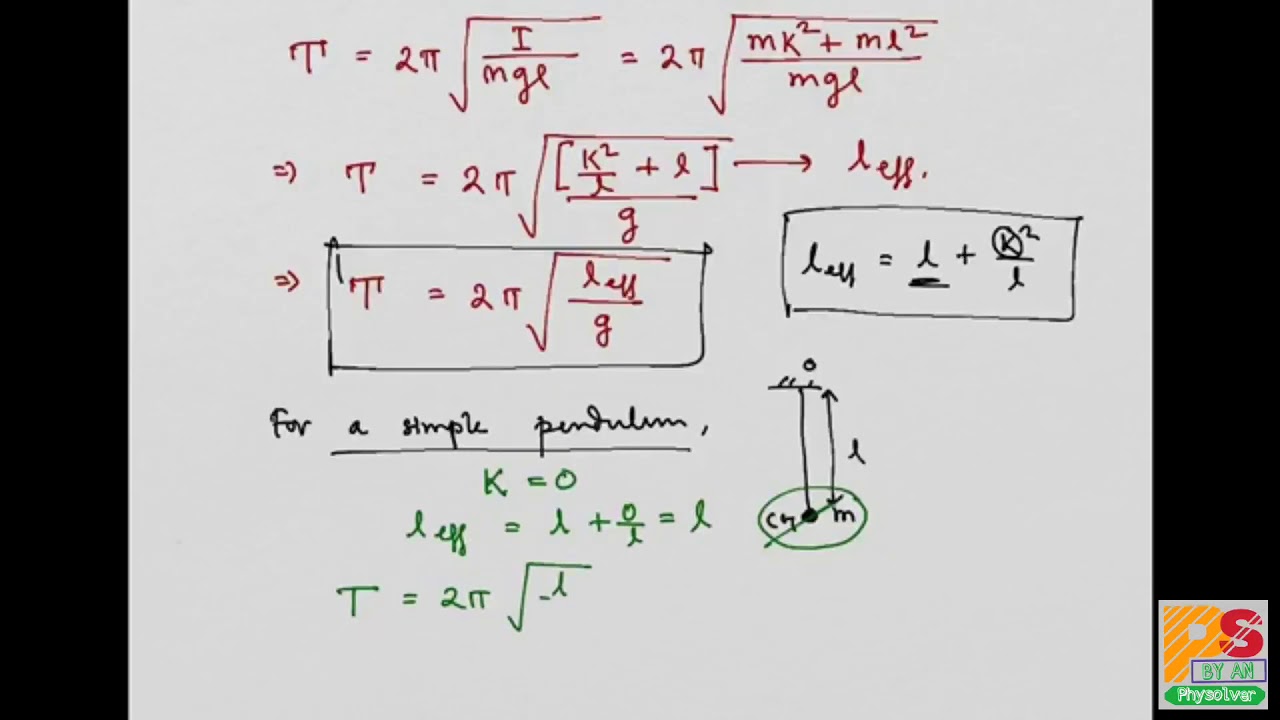 T = 2π √(I / mgl) = 2π √((mK² + ml²) / mgl)
=> T = 2π √([K²/l + l] / g) → l eff.
=> T = 2π √(l eff / g)
l eff = l + K²/l
For a simple pendulum,
K = 0
l eff = l + 0/l = l
T = 2π √l
O
l
CG m
PS
BY AN
Physolver